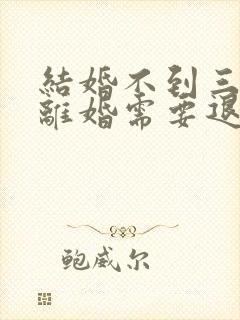 結婚不到三
離婚需要退
鲍威尔